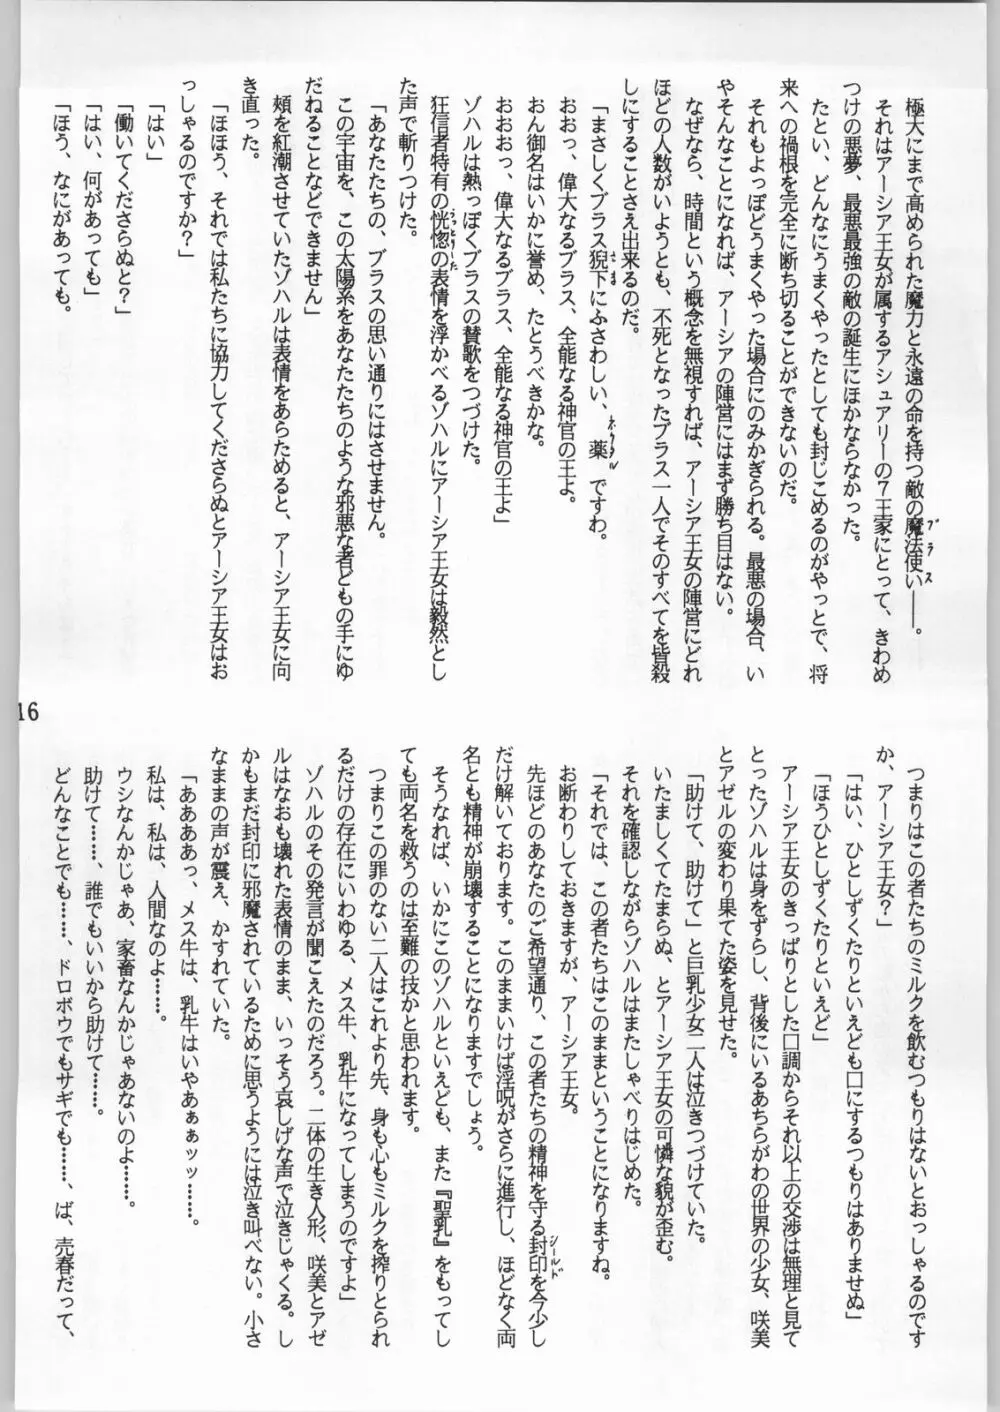 極大にまで高められた魔力と永遠の命を持つ敵の魔法使い――。
それはアーシア王女が属するアシュアリーの7王家にとって、きわめ
つけの悪夢、最悪最強の敵の誕生にほかならなかった。
たとい、どんなにうまくやったとしても封じこめるのがやっとで、将
来への禍根を完全に断ち切ることができないのだ。
それもよっぽどうまくやった場合にのみかぎられる。最悪の場合、い
やそんなことになれば、アーシアの陣営にはまず勝ち目はない。
なぜなら、時間という概念を無視すれば、アーシア王女の陣営にどれ
ほどの人数がいようとも、不死となったブラス一人でそのすべてを皆殺
しにすることさえ出来るのだ。
「まさしくブラス猊下にふさわしい、薬ですわ。
おおっ、偉大なるブラス、全能なる神官の王よ。
おん御名はいかに誉め、たとうべきかな。
おおおっ、偉大なるブラス、全能なる神官の王よ」
ゾハルは熱っぽくブラスの賛歌をつづけた。
狂信者特有の恍惚の表情を浮かべるゾハルにアーシア王女は毅然とし
た声で斬りつけた。
「あなたたちの、ブラスの思い通りにはさせません。
この宇宙を、この太陽系をあなたたちのような邪悪な者どもの手にゆ
だねることなどできません」
頬を紅潮させていたゾハルは表情をあらためると、アーシア王女に向
き直った。
「ほほう、それでは私たちに協力してくださらぬとアーシア王女はお
っしゃるのですか？」
「はい」
「働いてくださらぬと？」
「はい、何があっても」
「ほう、なにがあっても。
つまりはこの者たちのミルクを飲むつもりはないとおっしゃるのです
か、アーシア王女？」
「はい、ひとしずくたりといえども口にするつもりはありませぬ」
「ほうひとしずくたりといえど」
アーシア王女のきっぱりとした口調からそれ以上の交渉は無理と見て
とったゾハルは身をずらし、背後にいるあちらがわの世界の少女、咲美
とアゼルの変わり果てた姿を見せた。
「助けて、助けて」と巨乳少女二人は泣きつづけていた。
いたましくてたまらぬ、とアーシア王女の可憐な貌が歪む。
それを確認しながらゾハルはまたしゃべりはじめた。
「それでは、この者たちはこのままということになりますね。
お断わりしておきますが、アーシア王女。
先ほどのあなたのご希望通り、この者たちの精神を守る封印を今少し
だけ解いております。このままいけば淫呪がさらに進行し、ほどなく両
名とも精神が崩壊することになりますでしょう。
そうなれば、いかにこのゾハルといえども、また『聖乳』をもってし
ても両名を救うのは至難の技かと思われます。
つまりこの罪のない二人はこれより先、身も心もミルクを搾りとられ
るだけの存在にいわゆる、メス牛、乳牛になってしまうのですよ」
ゾハルのその発言が聞こえたのだろう。二体の生き人形、咲美とアゼ
ルはなおも壊れた表情のまま、いっそう哀しげな声で泣きじゃくる。し
かもまだ封印に邪魔されているために思うようには泣き叫べない。小さ
なままの声が震え、かすれていた。
「ああああっ、メス牛は、乳牛はいやあぁぁッッ……。
私は、私は、人間なのよ……。
ウシなんかじゃあ、家畜なんかじゃあないのよ……。
助けて……、誰でもいいから助けて……。
どんなことでも……、ドロボウでもサギでも……、ば、売春だって、
16